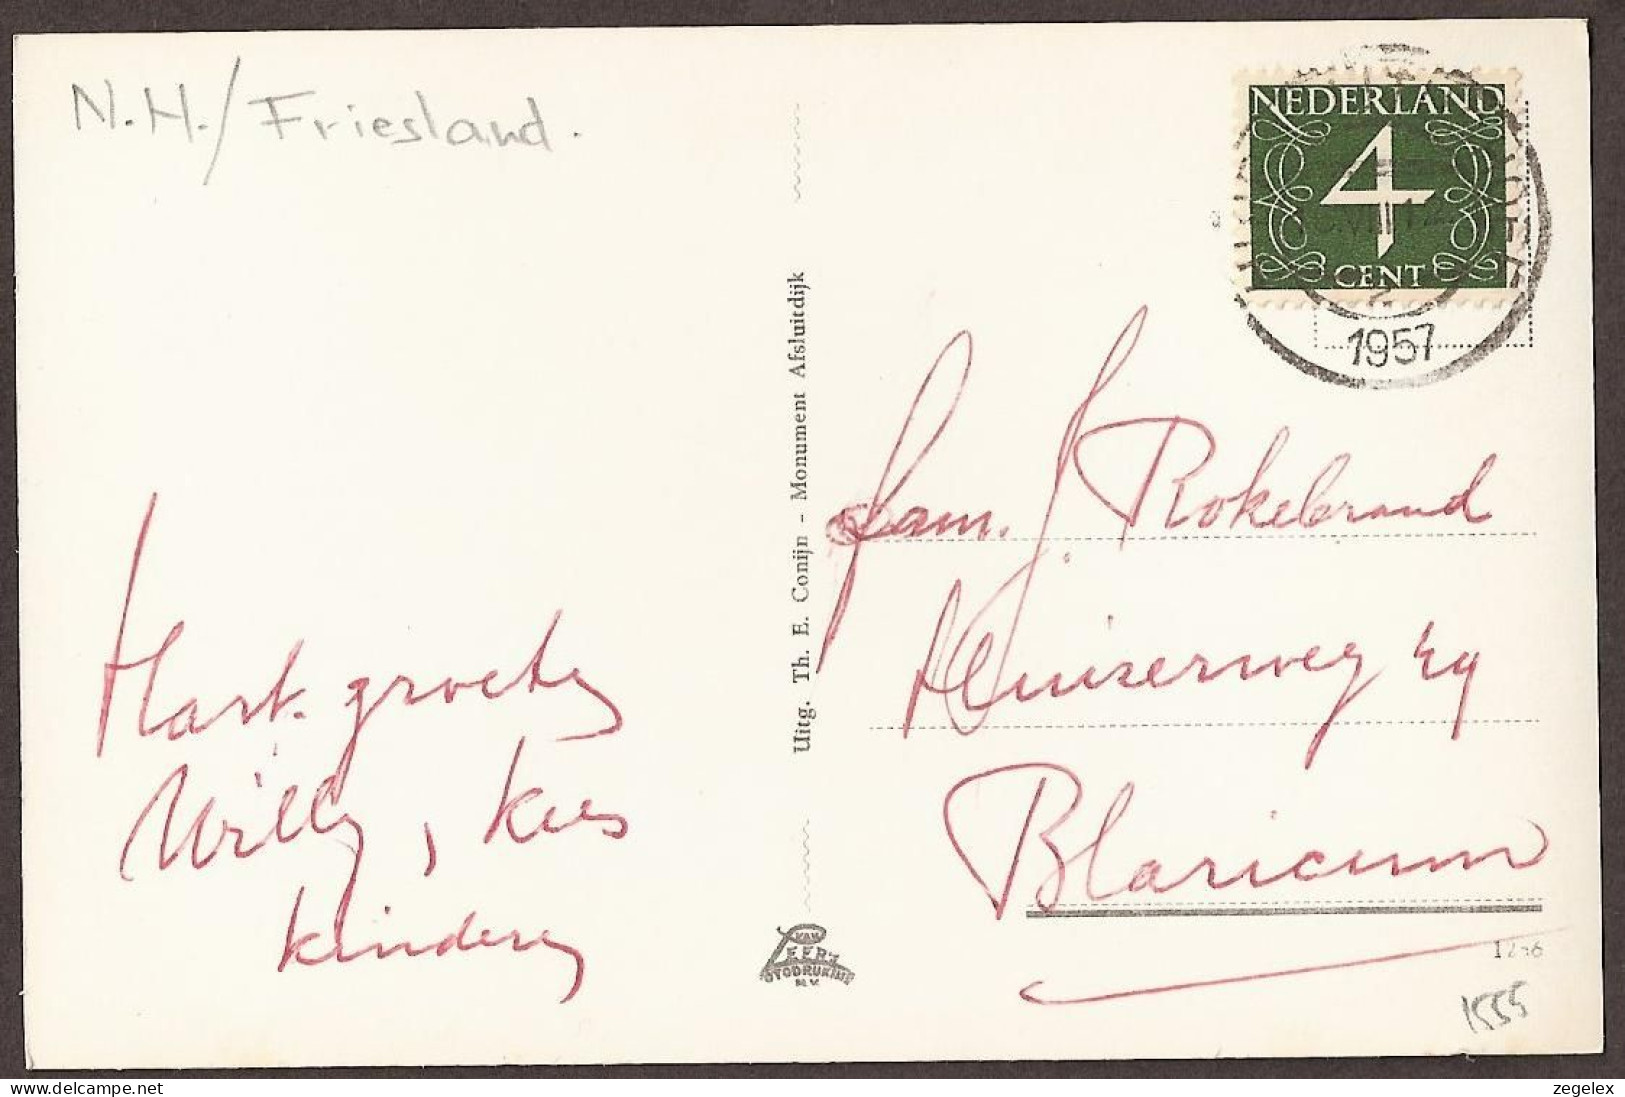 N.H./Friesland.
NEDERLAND
4
CENT
1957
Uitg. Th. E. Conijn - Monument Afsluitdijk
Fam. J. Rokebrand
Huizerweg
Blaricum
Hart. groeten
Willy, Kees
kinderen
VAN
LEER'S
FOTODRUKIND
N.V.
1555
Delcampe.net
zegelex